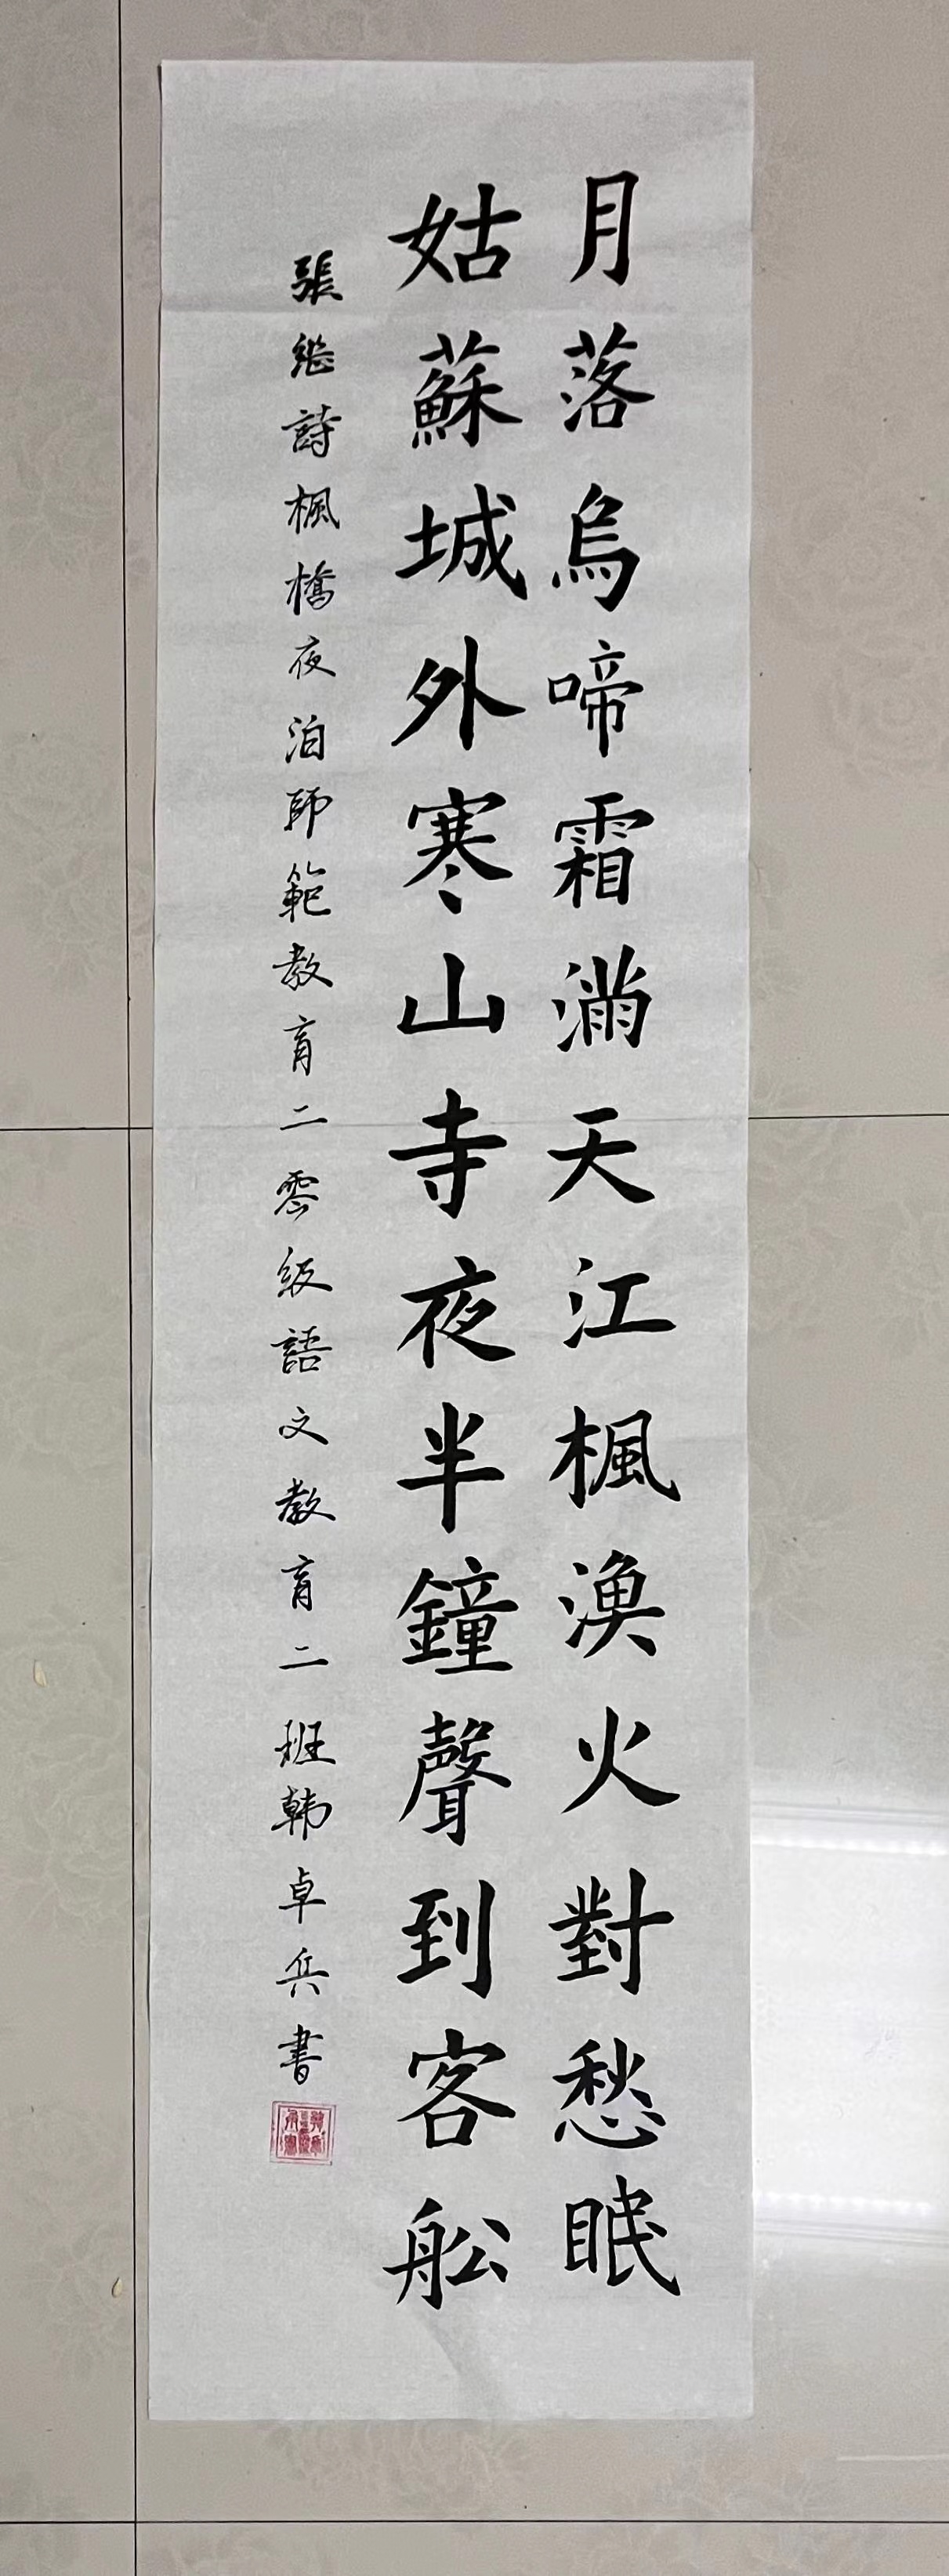 月落烏啼霜滿天江楓漁火對愁眠
姑蘇城外寒山寺夜半鐘聲到客舩
張継詩楓橋夜泊師範教育二零級語文教育二班韩卓兵書